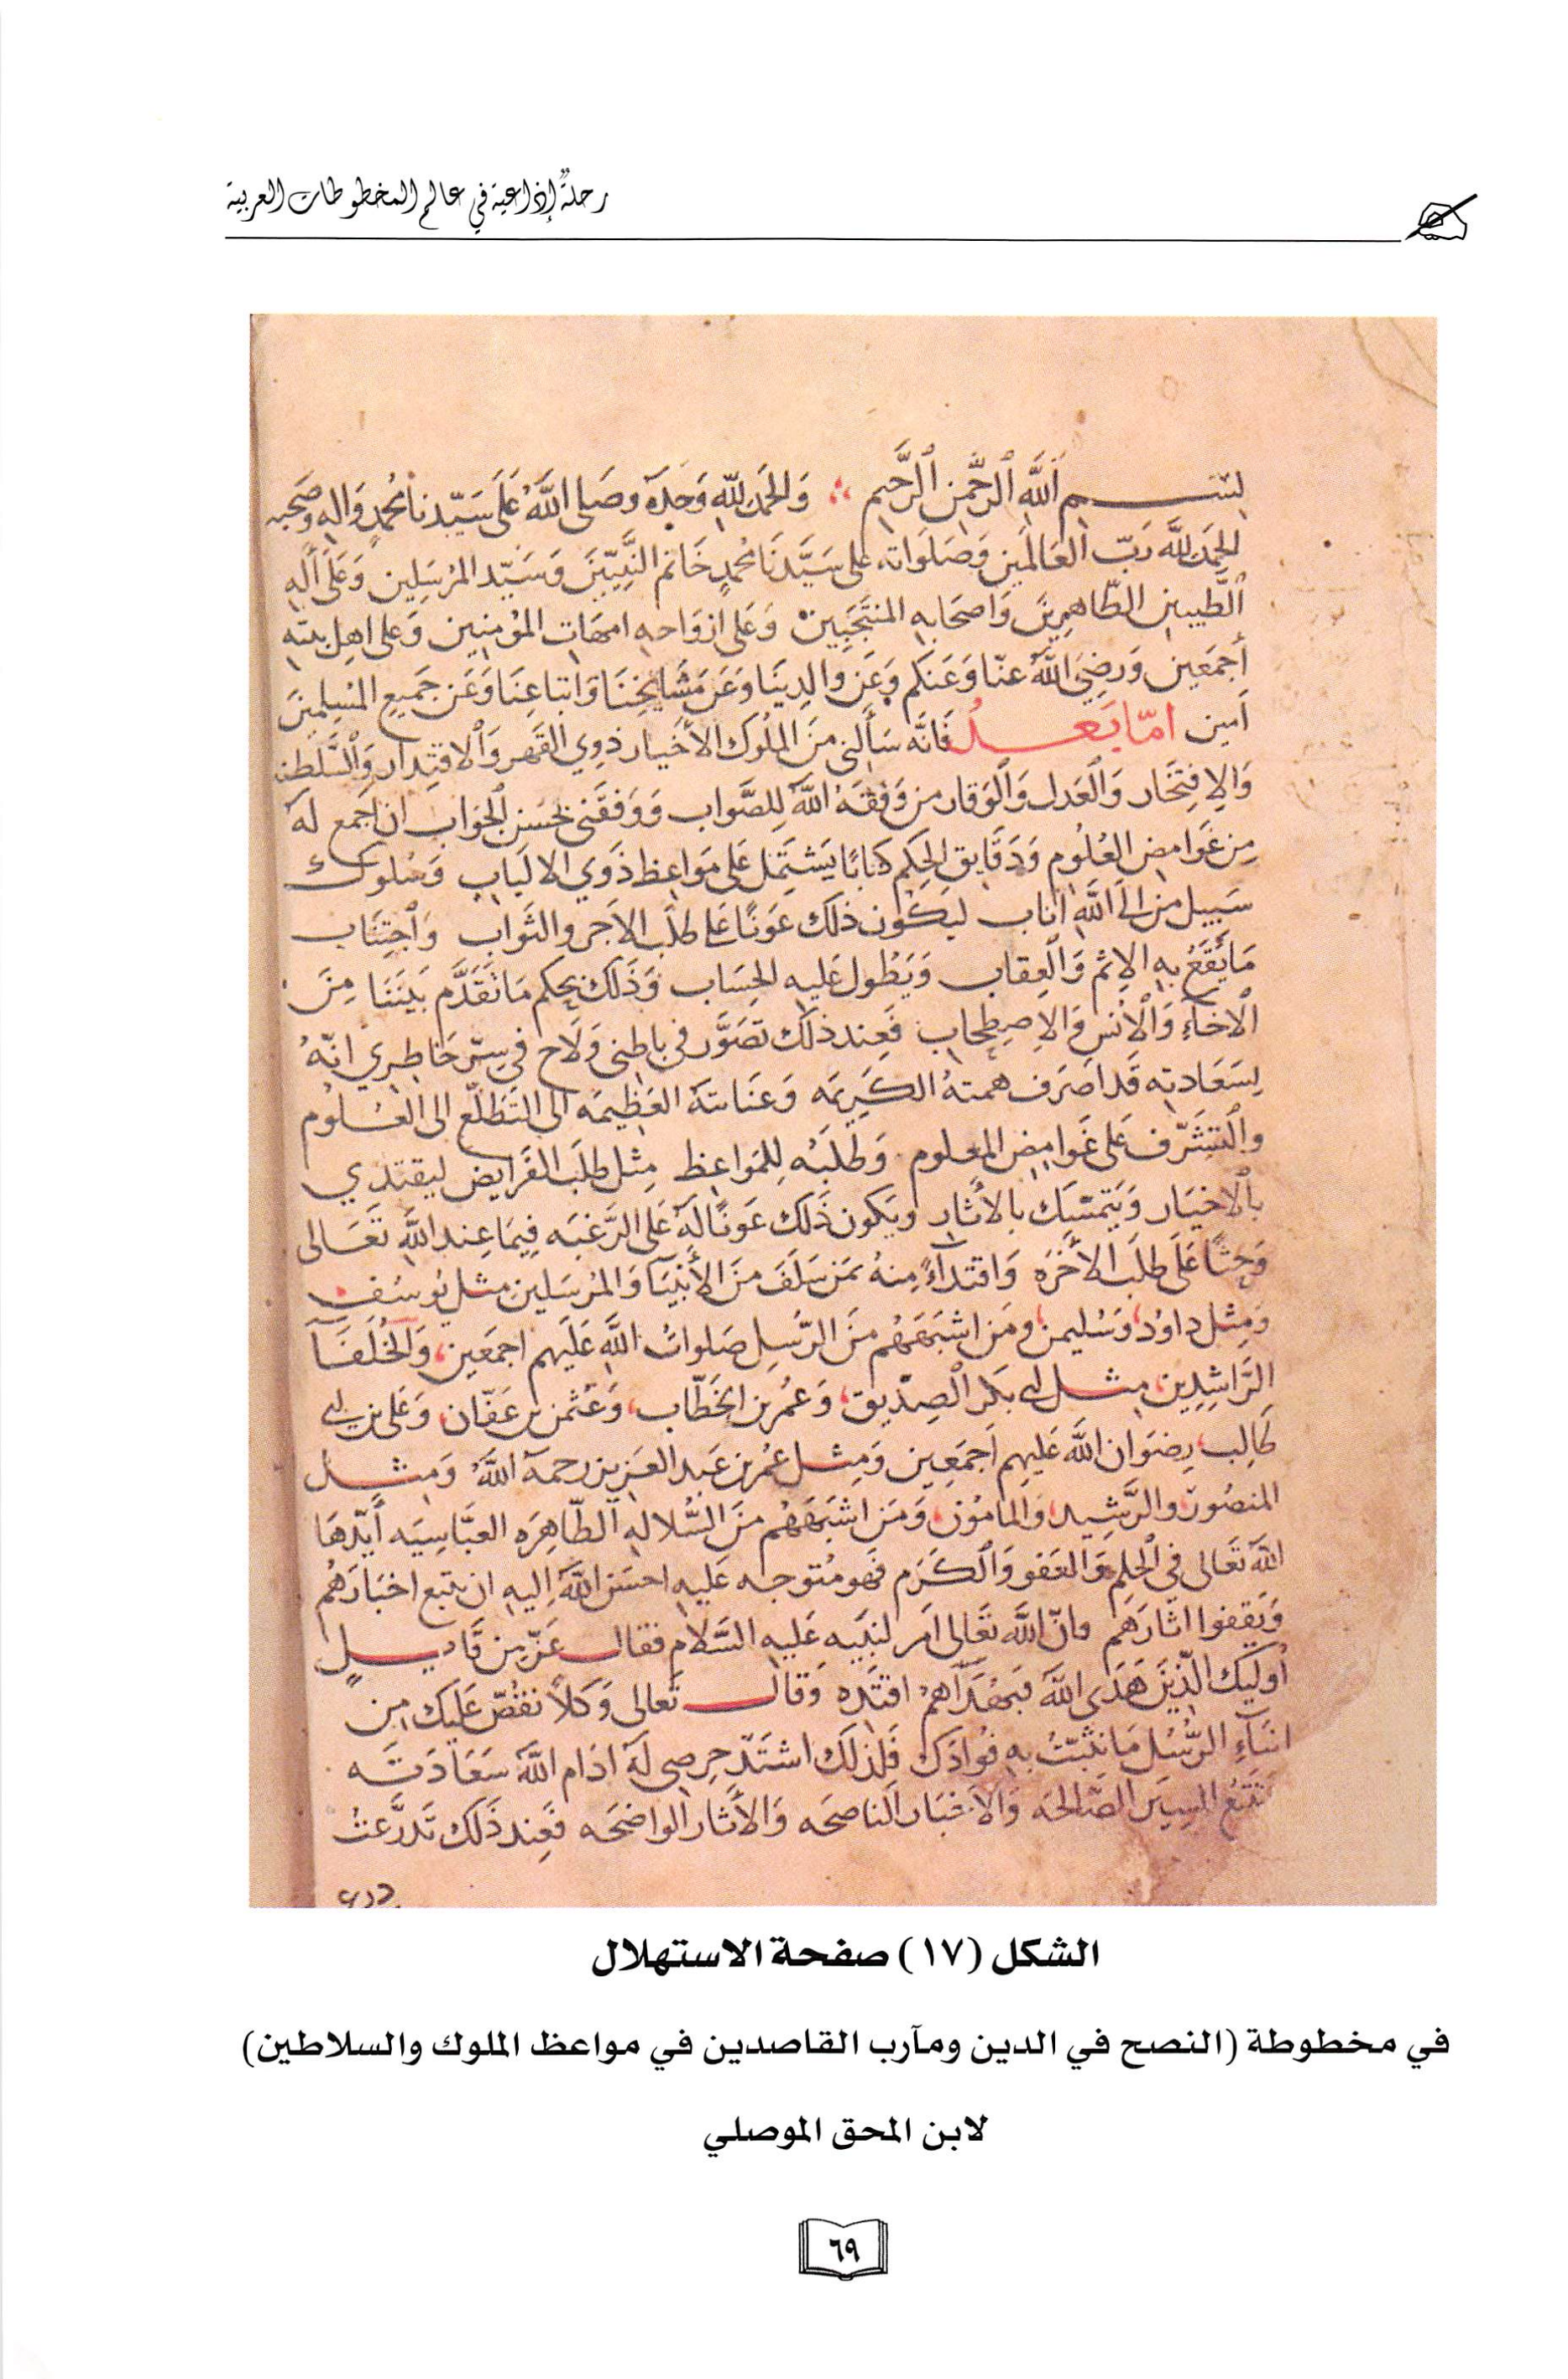 رحلةٌ إذاعية في عالم المخطوطات العربية
بسم الله الرحمن الرحيم والحمد لله وحده وصلى الله على سيدنا محمد واله وصحبه
الحمد لله رب العالمين وصلواته على سيدنا محمد خاتم النبيين وسيد المرسلين وعلى اله
الطيبين الطاهرين واصحابه المنتجبين وعلى ازواجه امهات المؤمنين وعلى اهل بيته
أجمعين ورضي الله عنا وعنكم وعن والدينا وعن مشايخنا واتباعنا وعن جميع المسلمين
آمين امّا بعد فانه سألني من الملوك الأخيار ذوي القهر والاقتدار والسلطنه
والافتخار والعدل والوقار من وفقه الله للصواب ووفقني لحسن الجواب ان اجمع له
من غوامض العلوم ودقايق الحكم كتابا يشتمل على مواعظ ذوي الالباب وسلوك
سبيل من الى الله اناب ليكون ذلك عونا على طلب الاجر والثواب واجتناب
ما يقع به الاثم والعقاب ويطول عليه الحساب وذلك بحكم ما تقدم بيننا من
الاخاء والانس والاصطحاب فعند ذلك تصور في باطني ولاح في سر خاطري انه
بسعادته قد اصرف همته الكريمه وعنايته العظيمه الى التطلع الى العلوم
والتشرف على غوامض المعلوم وطلبه للمواعظ مثل طلب الفرايض ليقتدي
بالاخيار ويتمسك بالأثار ويكون ذلك عونا له على الرغبه فيما عند الله تعالى
وحثا على طلب الأخره واقتداءً منه بمن سلف من الأنبيآ والمرسلين مثل يوسف
ومثل داود وسليمن ومن اشبههم من الرسل صلوات الله عليهم اجمعين والخلفآ
الراشدين مثل ابي بكر الصديق وعمر بن الخطاب وعثمن بن عفان وعلي بن ابي
طالب رضوان الله عليهم اجمعين ومثل عمر بن عبد العزيز رحمه الله ومثل
المنصور والرشيد والمامون ومن اشبههم من السلاله الطاهره العباسيه أيدها
الله تعالى في الحلم والعفو والكرم فهو متوجه عليه احسن الله اليه ان يتبع اخبارهم
ويقفوا اثارهم وان الله تعالى امر لنبيه عليه السلام فقال عز من قايل
أوليك الذين هدى الله فبهداهم اقتده وقال تعالى وكلا نقص عليك من
انباء الرسل ما نثبت به فوادك فلذلك اشتد حرصي له ادام الله سعادته
تتبع السير الصالحه والاخبار الناصحه والأثار الواضحه فعند ذلك تدرعت
الشكل (١٧) صفحة الاستهلال
في مخطوطة (النصح في الدين ومآرب القاصدين في مواعظ الملوك والسلاطين)
لابن المحق الموصلي
٦٩